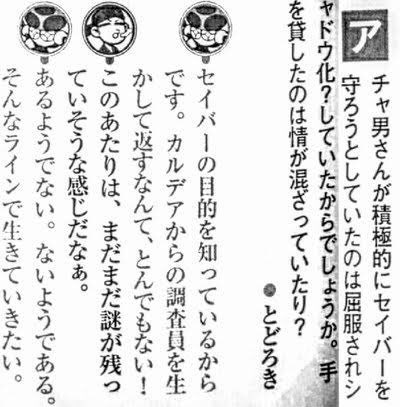 ア
チャ男さんが積極的にセイバーを
守ろうとしていたのは屈服されシ
ャドウ化?していたからでしょうか。手
を貸したのは情が混ざっていたり?
●とどろき
セイバーの目的を知っているから
です。カルデアからの調査員を生
かして返すなんて、とんでもない!
このあたりは、まだまだ謎が残っ
ていそうな感じだなぁ。
あるようでない。ないようである。
そんなラインで生きていきたい。